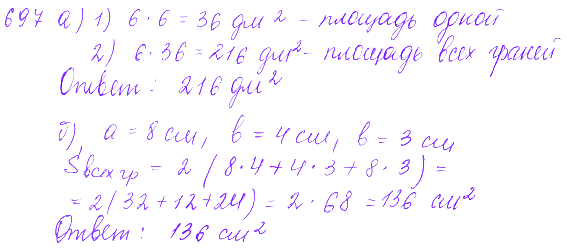 697 а) 1) 6 · 6 = 36 дм² - площадь одной
2) 6 · 36 = 216 дм² - площадь всех граней
Ответ: 216 дм²
б) a = 8 см, в = 4 см, в = 3 см
Sвсех гр = 2 (8 · 4 + 4 · 3 + 8 · 3) =
= 2(32 + 12 + 24) = 2 · 68 = 136 см²
Ответ: 136 см²